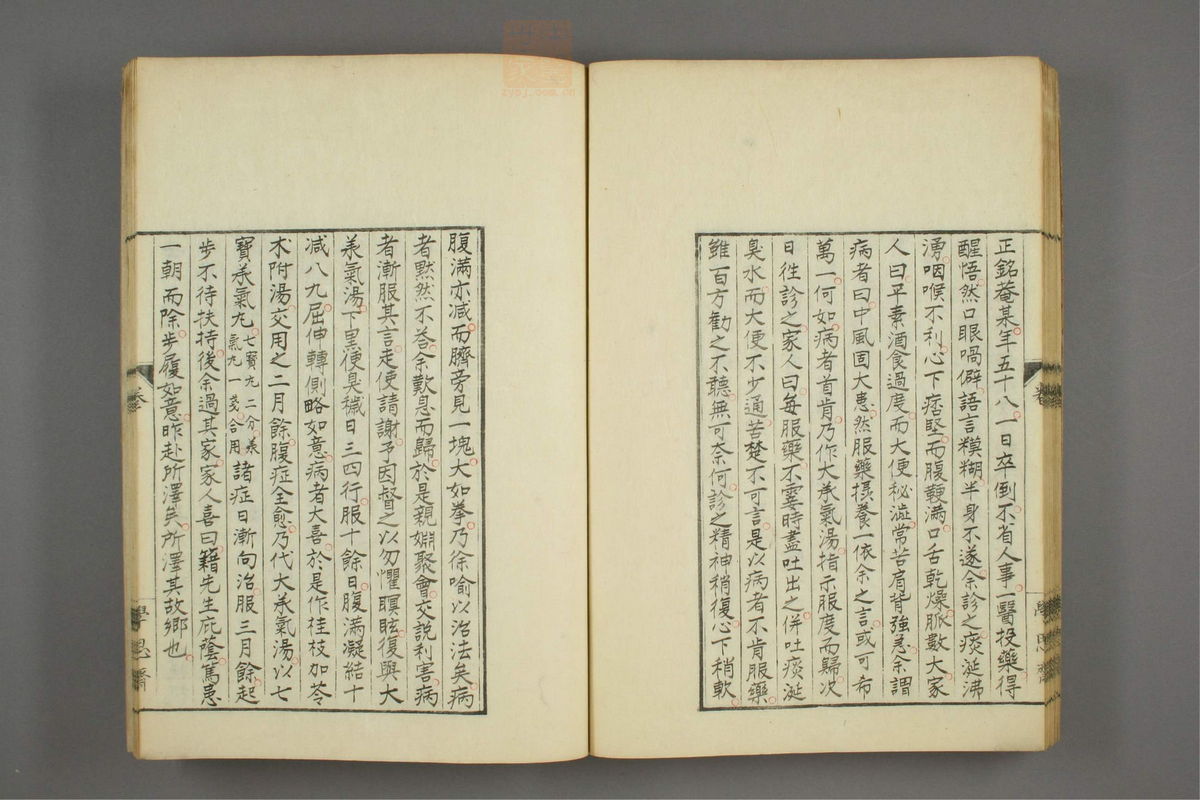 正銘菴某年五十八一日卒倒不省人事一醫投藥得
醒悟然口眼喎僻語言糢糊半身不遂余診之痰涎沸
湧咽喉不利心下痞堅而腹鞕滿口舌乾燥脈數大家
人曰平素酒食過度而大便秘澁常苦肩背強急余謂
病者曰中風固大患然服藥摂養一依余之言或可希
萬一何如病者首肯乃作大承氣湯指示服度而歸次
日徃診之家人曰每服藥不霎時盡吐出之併吐痰涎
臭水而大便不少通苦楚不可言是以病者不肯服藥
雖百方勸之不聽無可奈何診之精神稍復心下稍軟
腹滿亦减而臍旁見一塊大如拳乃徐喻以治法矣病
者默然不荅余歎息而歸於是親姻聚會交說利害病
者漸服其言走使請謝予因督之以勿懼瞑眩復與大
承氣湯下黒便臭穢日三四行服十餘日腹滿凝結十
减八九屈伸轉側略如意病者大喜於是作桂枝加苓
朮附湯交用之二月餘腹症全愈乃代大承氣湯以七
寳承氣丸七寳丸二分承氣丸一戔合用諸症日漸向治服三月餘起
步不待扶持後余過其家家人喜曰籍先生庇蔭篤患
一朝而除步履如意昨赴所澤矣所澤其故鄉也
卷
學思齋
zysj.com.cn